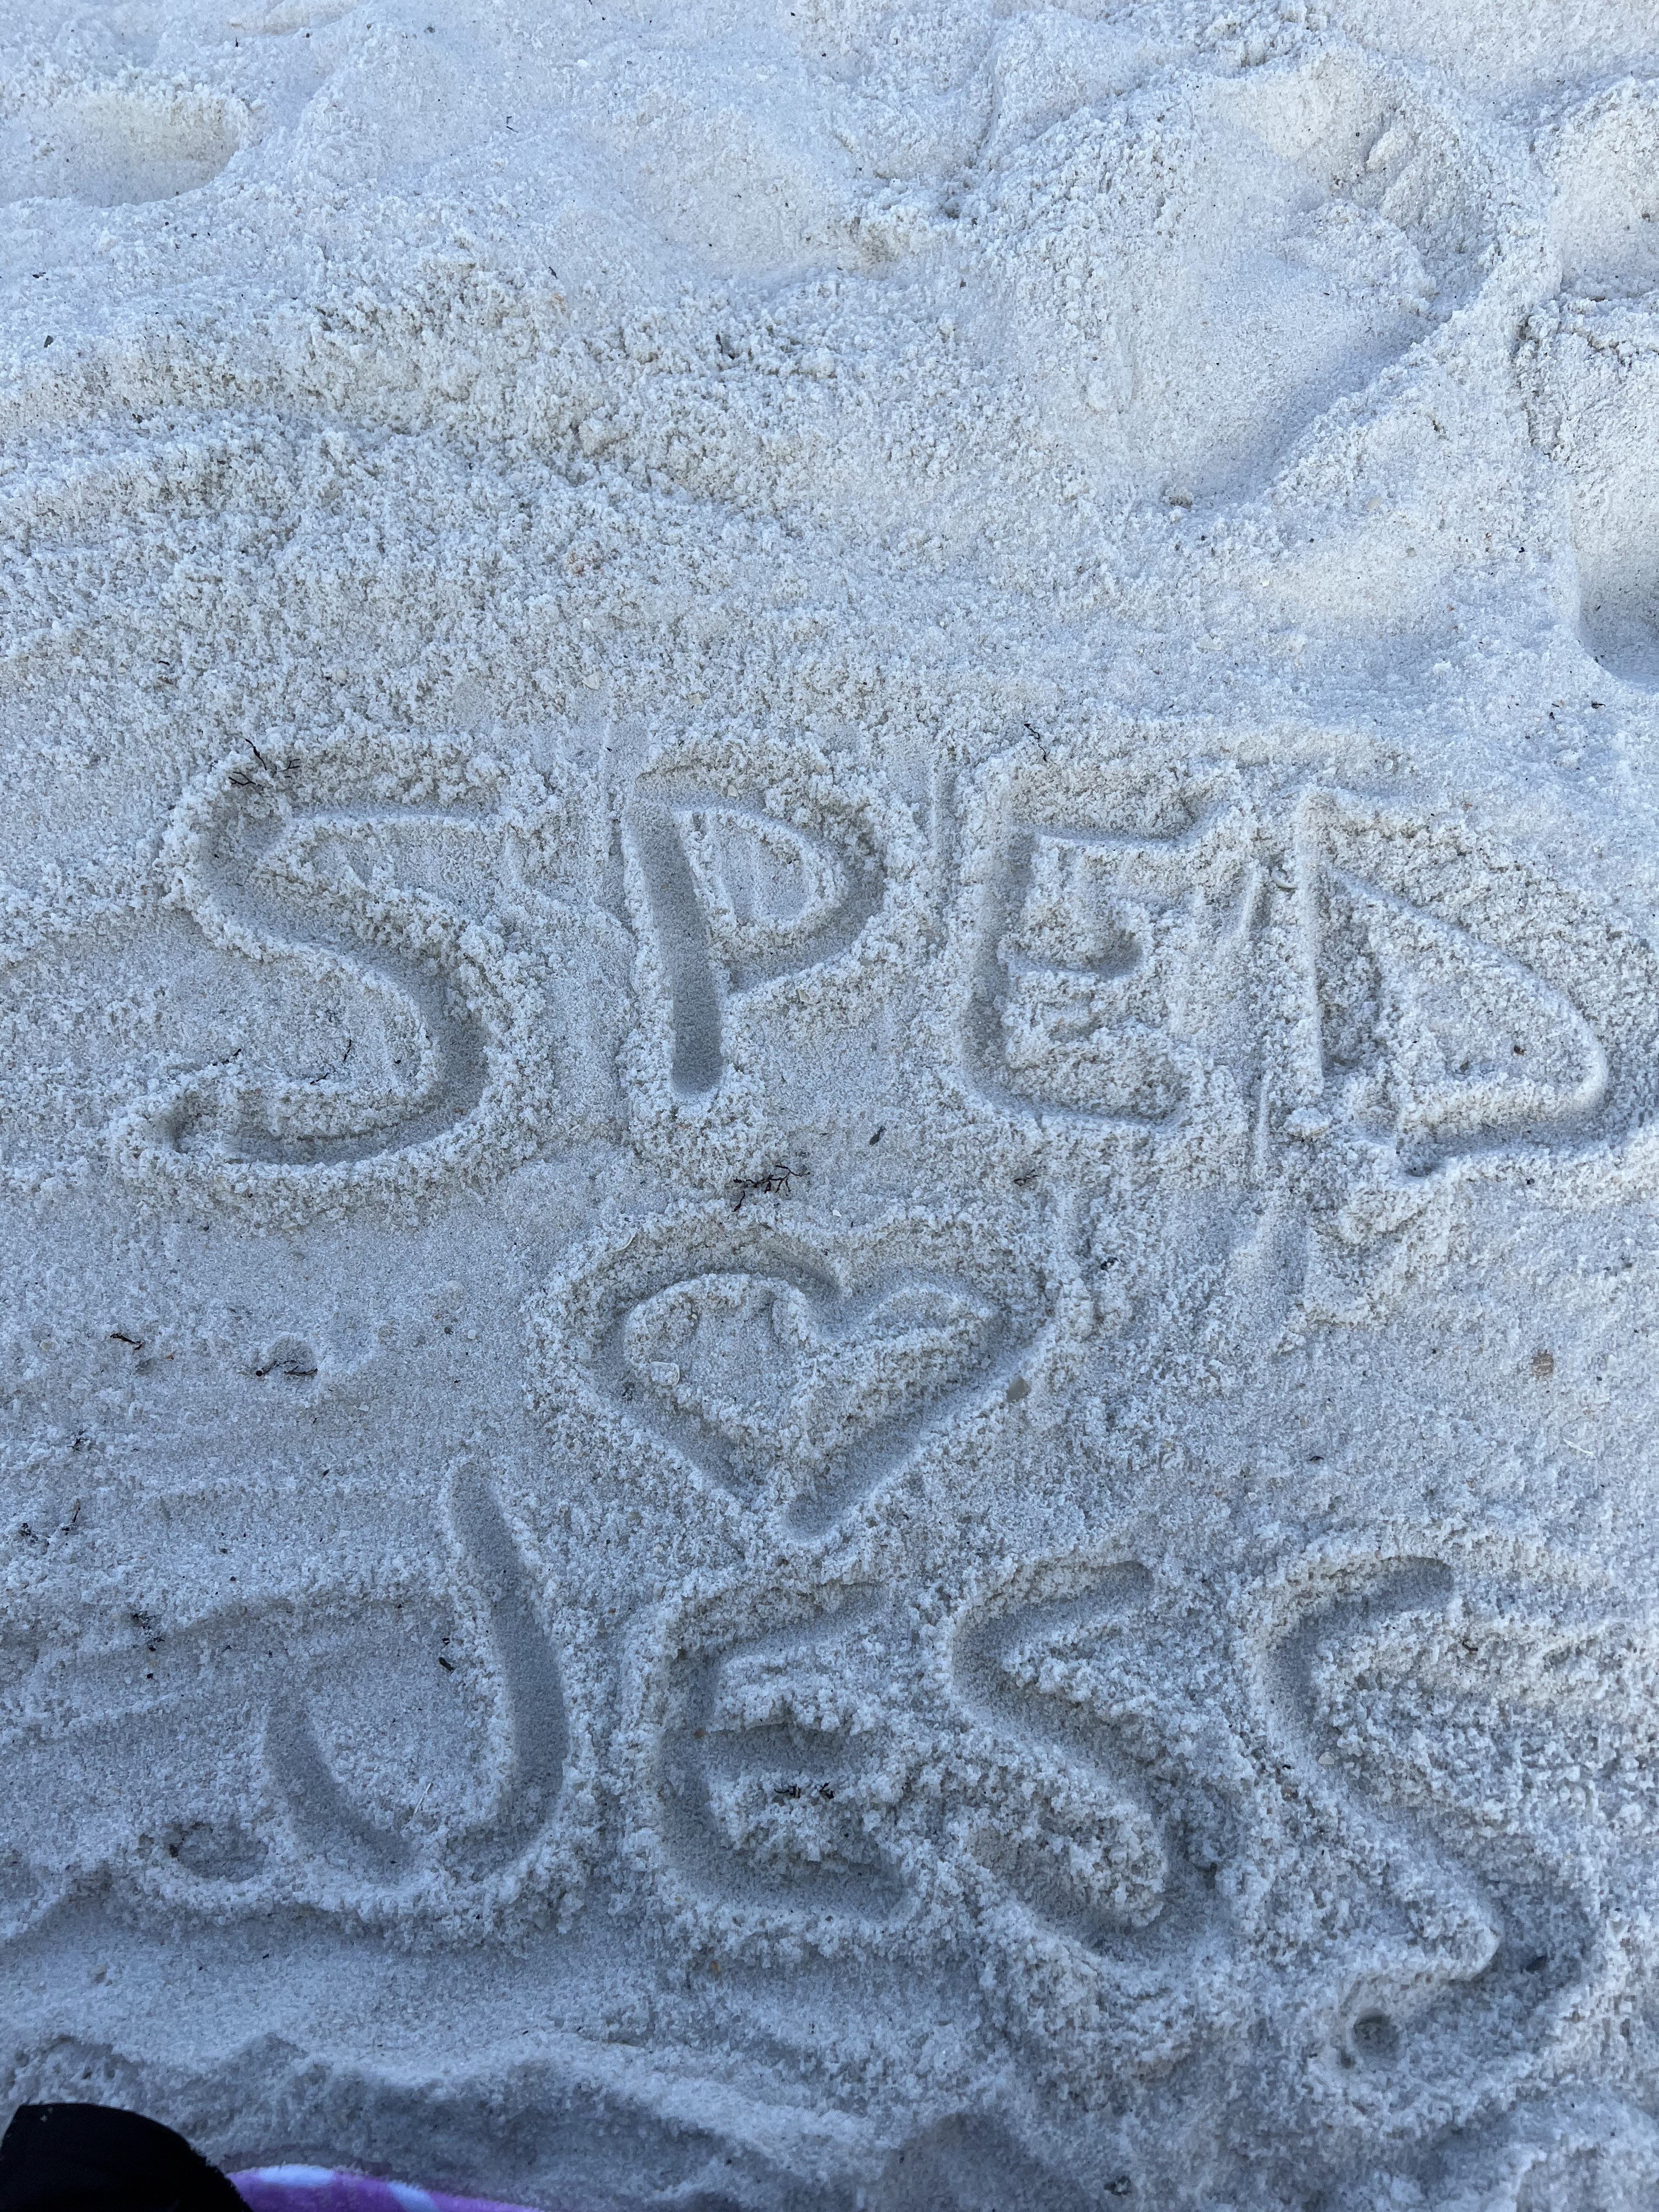 SPED
♥
JESS